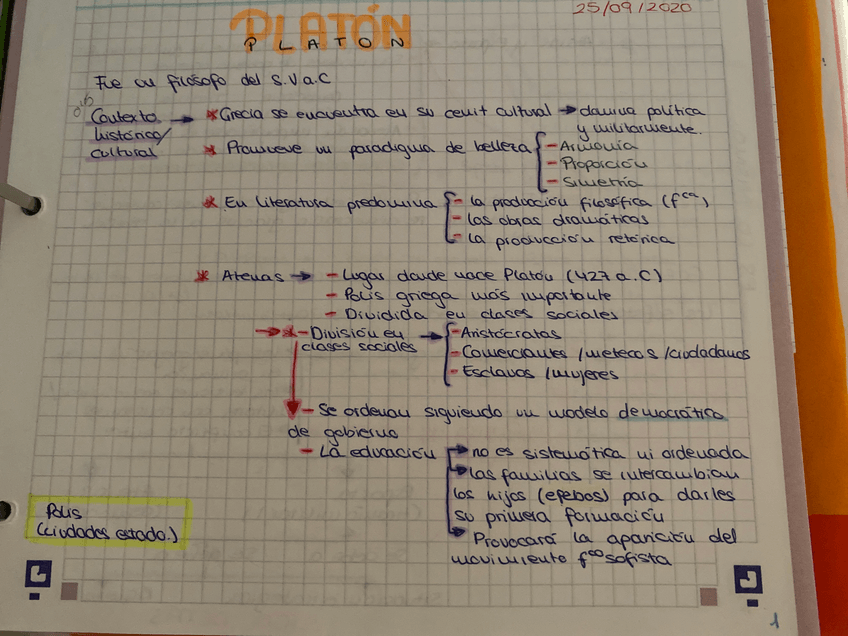 25/09/2020
PLATÓN
PLATON
Fue un filósofo del S.V a.C
Contexto histórico/ cultural → * Grecia se encuentra en su cenit cultural → domina política y militarmente.
* Promueve un paradigma de belleza { - Armonía
- Proporción
- Simetría
* En literatura predomina { - la producción filosófica (fᶜᵃ)
- las obras dramáticas
- la producción retórica
* Atenas → - Lugar donde nace Platón (427 a.C)
- Polis griega más importante
- Dividida en clases sociales
→ * - División en clases sociales → { - Aristócratas
- Comerciantes /metecos /ciudadanos
- Esclavos /mujeres
- Se ordenan siguiendo un modelo democrático
de gobierno
- La educación → no es sistemática ni ordenada
→ las familias se intercambian
los hijos (efebos) para darles
su primera formación
→ Provocará la aparición del
movimiento fᶜᵒ sofista
Polis
(ciudades estado.)
1